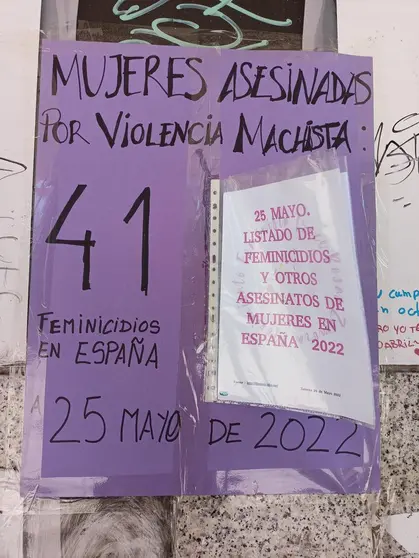 MUJERES ASESINADAS
POR VIOLENCIA MACHISTA:
41
FEMINICIDIOS
EN ESPAÑA
A 25 MAYO DE 2022
25 MAYO.
LISTADO DE
FEMINICIDIOS
Y OTROS
ASESINATOS DE
MUJERES EN
ESPAÑA 2022